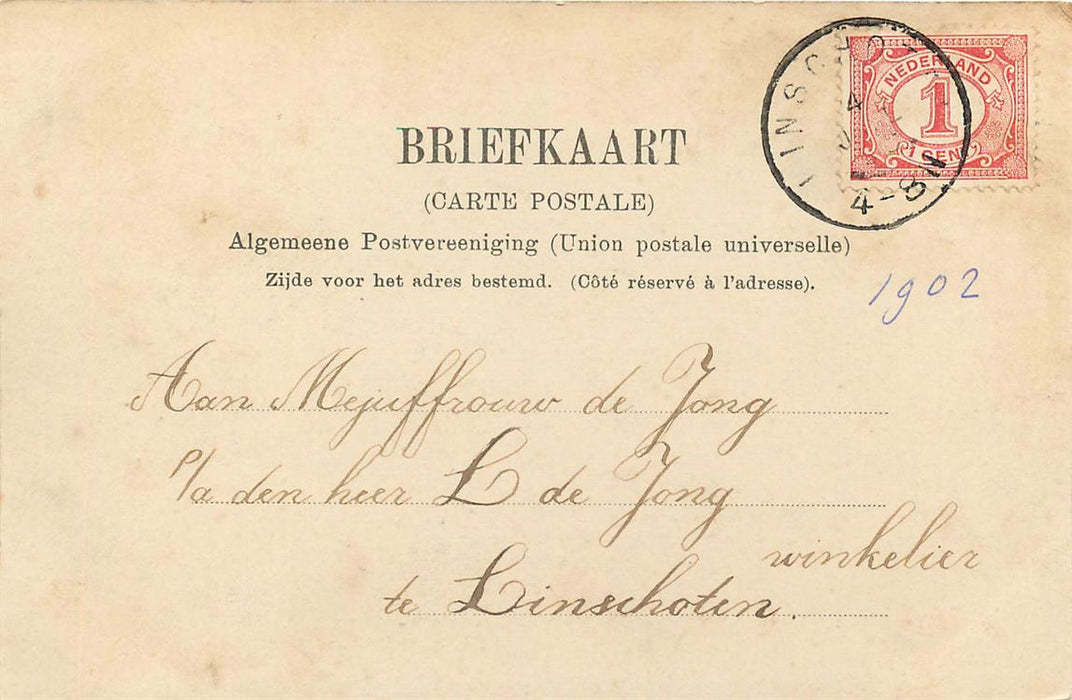 BRIEFKAART
(CARTE POSTALE)
Algemeene Postvereeniging (Union postale universelle)
Zijde voor het adres bestemd. (Côté réservé à l'adresse).
NEDERLAND
1
1 CENT
LINSCHOTEN
4
4-8N
1902
Aan Mejuffrouw de Jong
p/a den heer L de Jong
winkelier
te Linschoten.